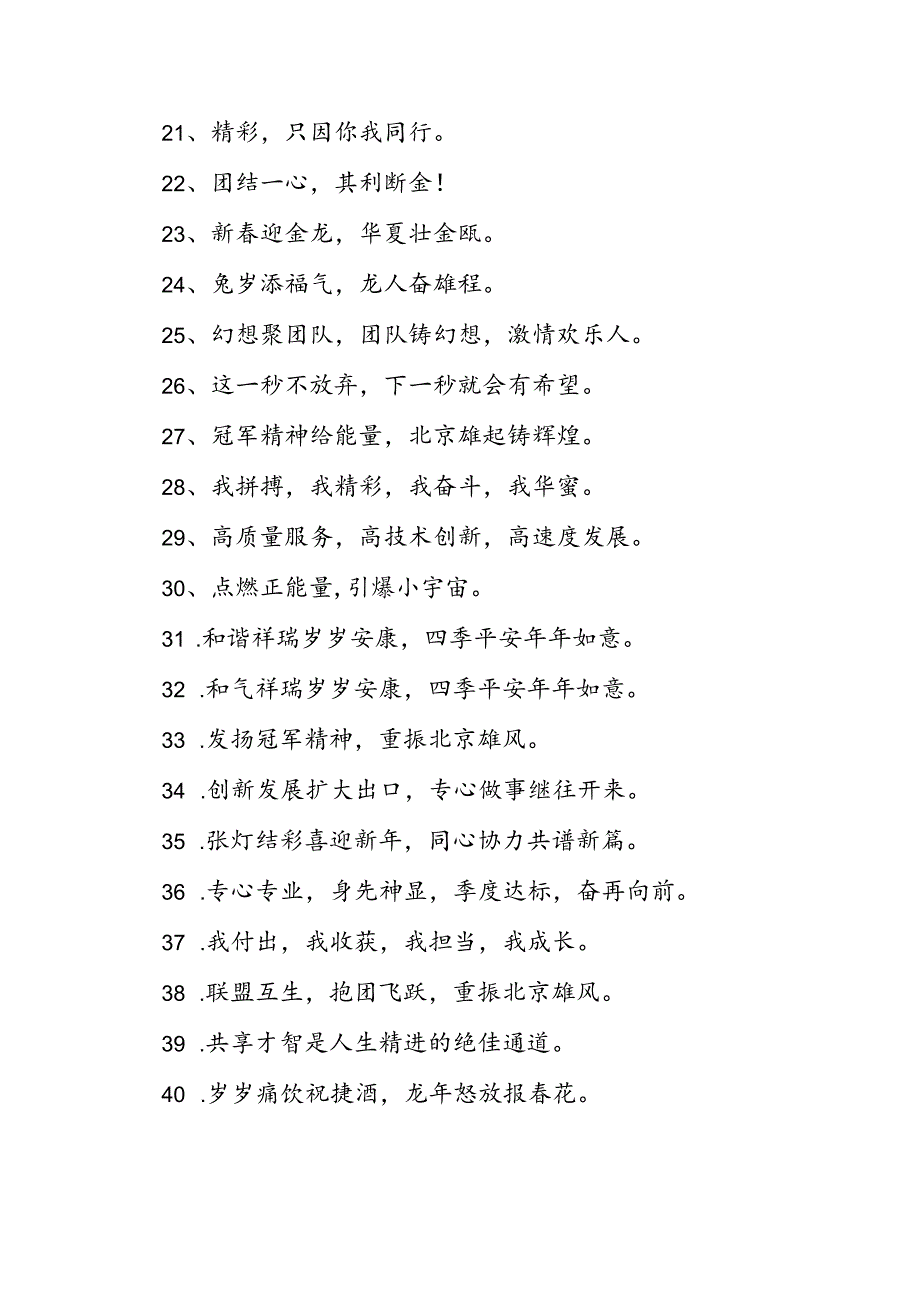 21、精彩，只因你我同行。
22、团结一心，其利断金！
23、新春迎金龙，华夏壮金瓯。
24、兔岁添福气，龙人奋雄程。
25、幻想聚团队，团队铸幻想，激情欢乐人。
26、这一秒不放弃，下一秒就会有希望。
27、冠军精神给能量，北京雄起铸辉煌。
28、我拼搏，我精彩，我奋斗，我华蜜。
29、高质量服务，高技术创新，高速度发展。
30、点燃正能量,引爆小宇宙。
31 .和谐祥瑞岁岁安康，四季平安年年如意。
32 .和气祥瑞岁岁安康，四季平安年年如意。
33 .发扬冠军精神，重振北京雄风。
34 .创新发展扩大出口，专心做事继往开来。
35 .张灯结彩喜迎新年，同心协力共谱新篇。
36 .专心专业，身先神显，季度达标，奋再向前。
37 .我付出，我收获，我担当，我成长。
38 .联盟互生，抱团飞跃，重振北京雄风。
39 .共享才智是人生精进的绝佳通道。
40 .岁岁痛饮祝捷酒，龙年怒放报春花。